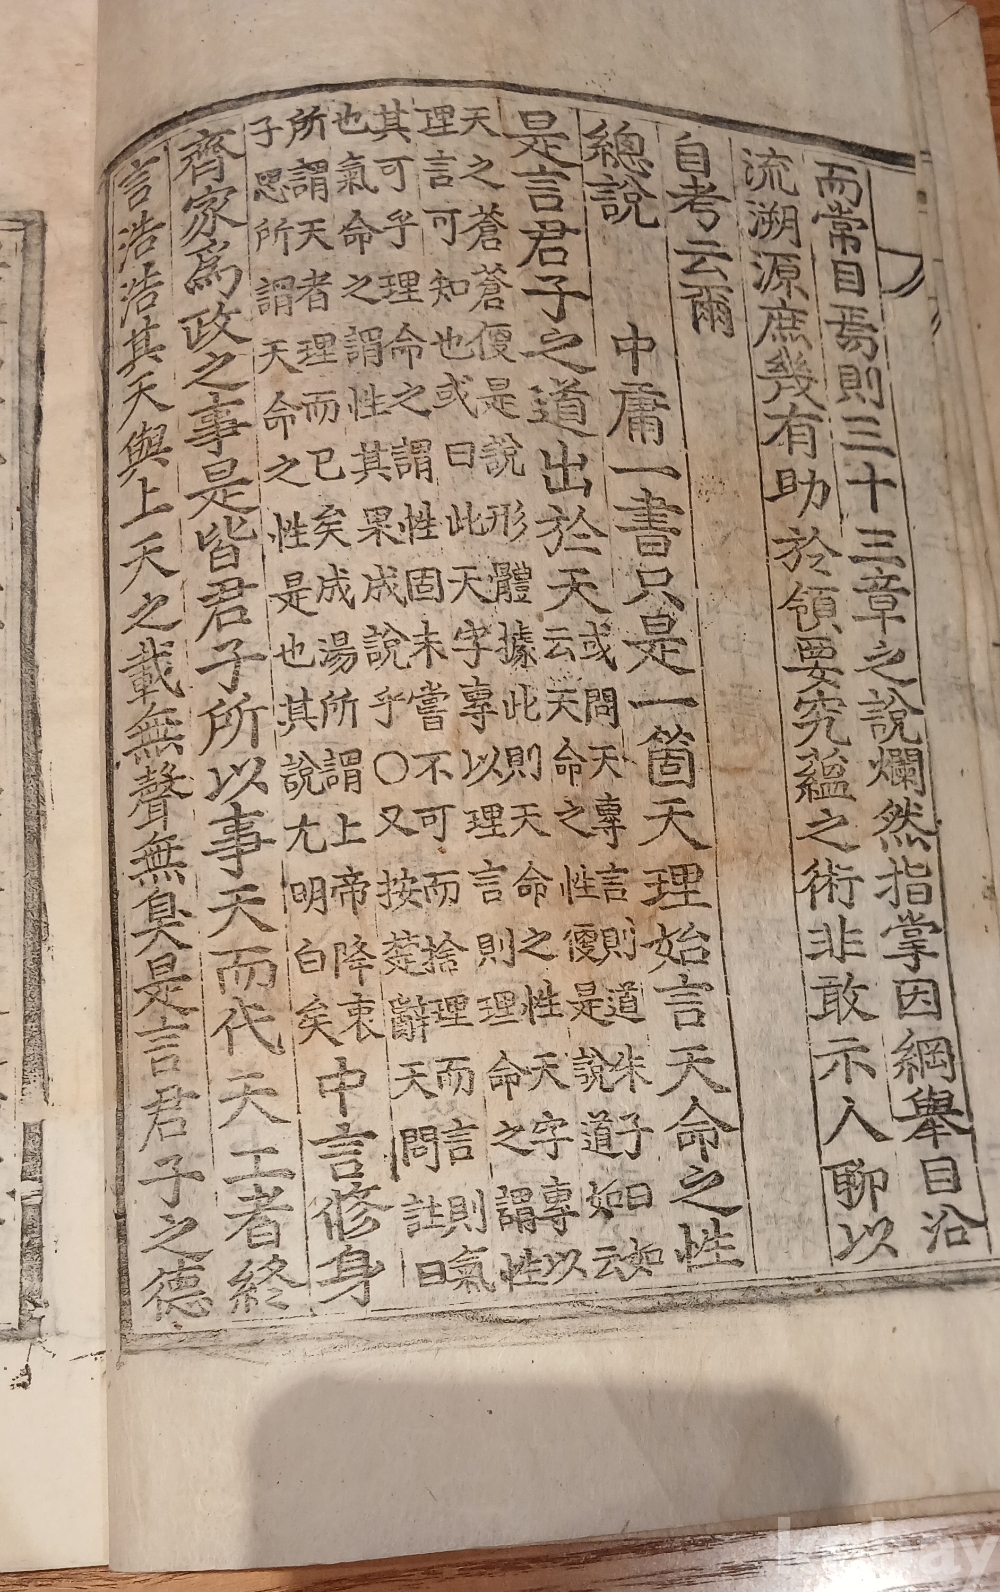 而常目焉則三十三章之說爛然指掌因綱舉目沿
流溯源庶幾有助於領要究蘊之術非敢示人聊以
自考云爾
總說
中庸一書只是一箇天理始言天命之性
是言君子之道出於天
或問天專言則道朱子曰如
云天命之性便是說道如云
天之蒼蒼便是說形體據此則天命之性天字專以
理言可知也或曰此天字專以理言則理命之謂性
其可乎理命之謂性固未嘗不可而捨理而言則氣
也氣命之謂性其果成說乎〇又按楚辭天問註曰
所謂天者理而已矣成湯所謂上帝降衷
子思所謂天命之性是也其說尤明白矣
中言修身
齊家爲政之事是皆君子所以事天而代天工者終
言浩浩其天與上天之載無聲無臭是言君子之德